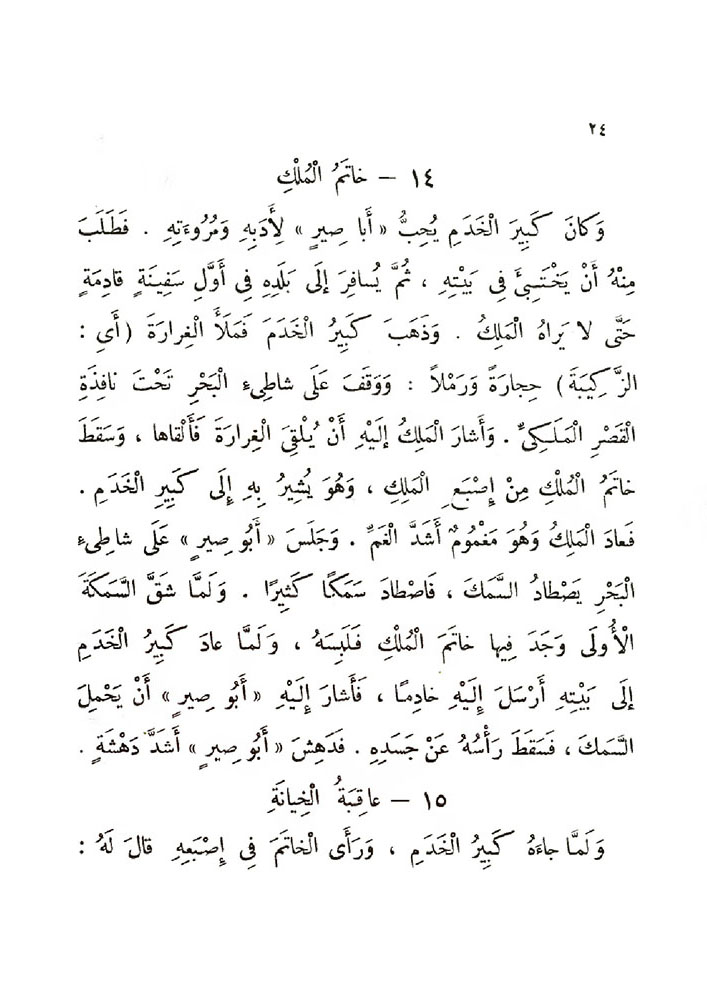 ٢٤
١٤ – خاتَمُ الْمُلْكِ
وَكانَ كَبِيرَ الْخَدَمِ يُحِبُّ « أَبا صِيرٍ » لِأَدَبِهِ وَمُرُوءَتِهِ . فَطَلَبَ
مِنْهُ أَنْ يَخْتَبِئَ فِي بَيْتِهِ ، ثُمَّ يُسافِرَ إلَى بَلَدِهِ فِي أَوَّلِ سَفِينَةٍ قادِمَةٍ
حَتَّى لا يَراهُ الْمَلِكُ . وَذَهَبَ كَبِيرُ الْخَدَمِ فَمَلَأَ الْغِرارَةَ (أَيِ :
الزَّكِيبَةَ) حِجارَةً وَرَمْلاً : وَوَقَفَ عَلَى شاطِىءِ الْبَحْرِ تَحْتَ نافِذَةِ
الْقَصْرِ الْمَلَكِىِّ . وَأَشارَ الْمَلِكُ إلَيْهِ أَنْ يُلْقِىَ الْغِرارَةَ فَأَلْقاها ، وَسَقَطَ
خاتَمُ الْمُلْكِ مِنْ إِصْبَعِ الْمَلِكِ ، وَهُوَ يُشِيرُ بِهِ إِلَى كَبِيرِ الْخَدَمِ .
فَعادَ الْمَلِكُ وَهُوَ مَغْمُومٌ أَشَدَّ الْغَمِّ . وَجَلَسَ « أَبُو صِيرٍ » عَلَى شاطِىءِ
الْبَحْرِ يَصْطادُ السَّمَكَ ، فَاصْطادَ سَمَكًا كَثِيرًا . وَلَمَّا شَقَّ السَّمَكَةَ
الْأُولَى وَجَدَ فِيها خاتَمَ الْمُلْكِ فَلَبِسَهُ ، وَلَمَّا عادَ كَبِيرُ الْخَدَمِ
إلَى بَيْتِهِ أَرْسَلَ إِلَيْهِ خادِمًا ، فَأَشارَ إِلَيْهِ « أَبُو صِيرٍ » أَنْ يَحْمِلَ
السَّمَكَ ، فَسَقَطَ رَأْسُهُ عَنْ جَسَدِهِ . فَدَهِشَ « أَبُو صِيرٍ » أَشَدَّ دَهْشَةٍ .
١٥ – عاقِبَةُ الْخِيانَةِ
وَلَمَّا جاءَهُ كَبِيرُ الْخَدَمِ ، وَرَأَى الْخاتَمَ فِي إِصْبَعِهِ قالَ لَهُ :